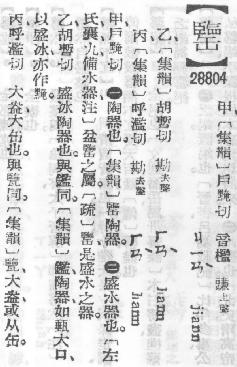 28804
甲〔集韻〕戶黤切 音檻 謙上鑒
ㄐㄧㄢˋ jiann
乙〔集韻〕胡暫切 勘去鑒 ㄏㄢˋ hann
丙〔集韻〕呼濫切 勘去鑒 ㄏㄢˋ hann
甲戶黤切 ㊀陶器也。〔集韻〕陶器。㊁盛水器也。〔左
氏襄九備水器注〕盆之屬。〔疏〕是盛水之器。
乙胡暫切 盛冰陶器也。與鑑同。〔集韻〕鑑陶器如甀大口、
以盛冰亦作。
丙呼濫切 大盆大缶也。與同。〔集韻〕、大盆或从缶。